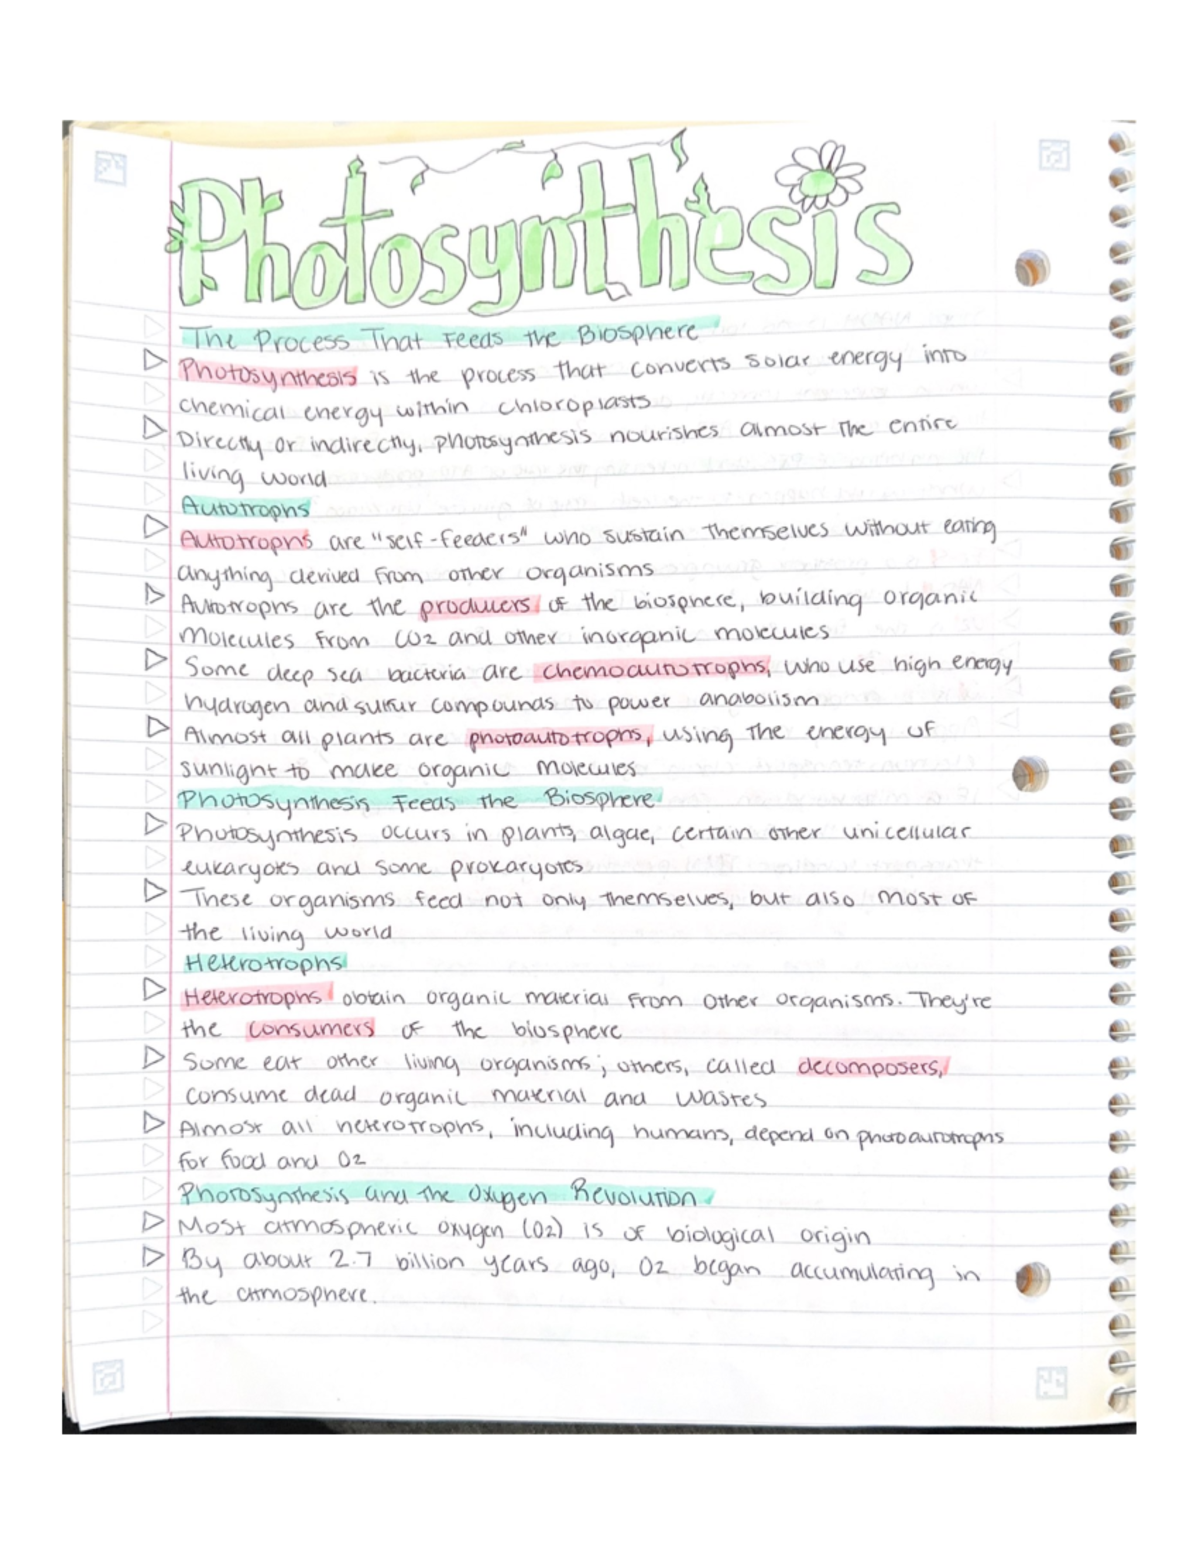 Photosynthesis
The Process That Feeds the Biosphere
Photosynthesis is the process that converts solar energy into
chemical energy within chloroplasts
Directly or indirectly, photosynthesis nourishes almost the entire
living world
Autotrophs
Autotrophs are "self-feeders" who sustain themselves without eating
anything derived from other organisms
Autotrophs are the producers of the biosphere, building organic
molecules from CO2 and other inorganic molecules
Some deep sea bacteria are chemoautotrophs, who use high energy
hydrogen and sulfur compounds to power anabolism
Almost all plants are photoautotrophs, using the energy of
sunlight to make organic molecules
Photosynthesis Feeds the Biosphere
Photosynthesis occurs in plants, algae, certain other unicellular
eukaryotes and some prokaryotes
These organisms feed not only themselves, but also most of
the living world
Heterotrophs
Heterotrophs obtain organic material from other organisms. They're
the consumers of the biosphere
Some eat other living organisms; others, called decomposers,
consume dead organic material and wastes
Almost all heterotrophs, including humans, depend on photoautotrophs
for food and O2
Photosynthesis and the Oxygen Revolution
Most atmospheric oxygen (O2) is of biological origin
By about 2.7 billion years ago, O2 began accumulating in
the atmosphere.